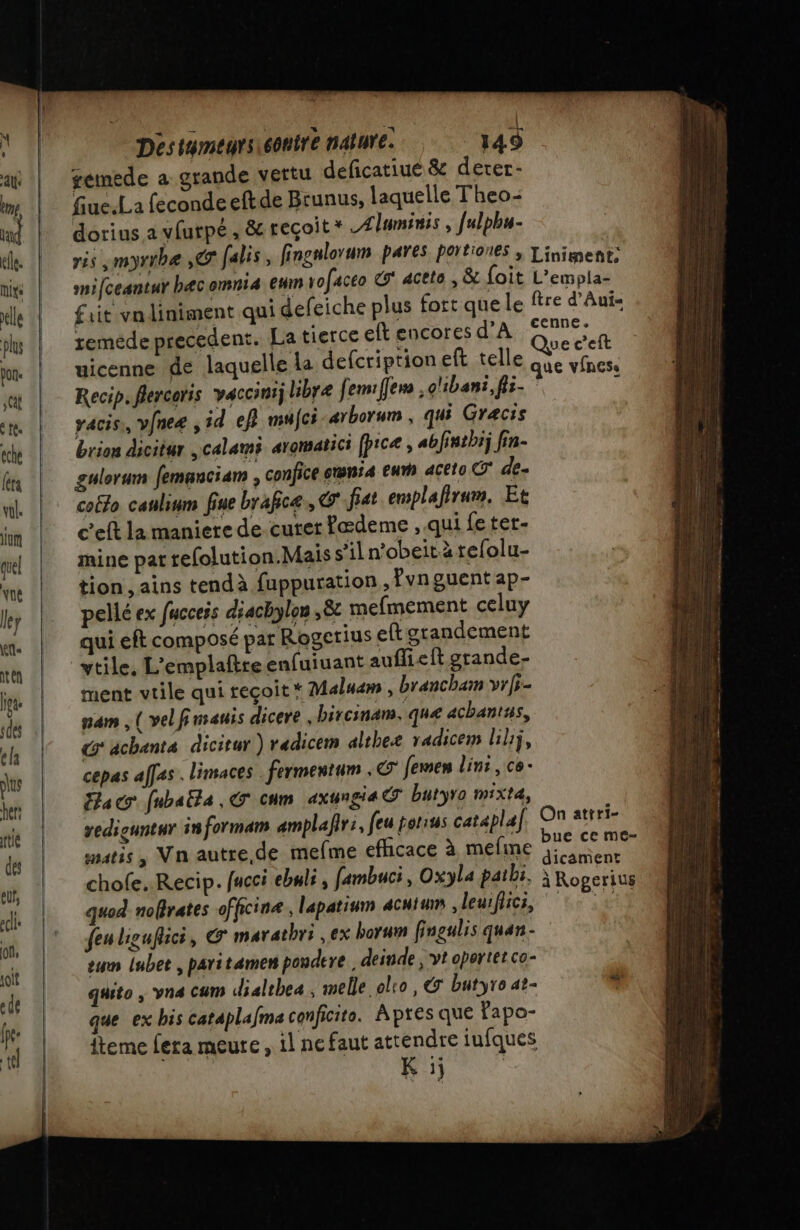 Des tumeurs contre nature. 149
remede a grande vertu deſicatiue & deter-
ſiue. La ſeconde eſt de Brunus, laquelle Theo-
dorius a vſurpé, & reçoit * Aluminis, ſulphu-
ris, myrrhæ, & ſalis, ſingulorum pares portiones,
miſceantur hæc omnia eum roſaceo & aceto, & ſoit
fait vn liniment qui deſeiche plus fort que le
remede precedent. La tierce eſt encores d'A
uicenne de laquelle la deſcription eſt telle
Recip. ſtercoris vaccinij libræ ſemiſſem, olibani, ſti-
racis, vſneæ, id eſt muſci arborum, qui Græcis
brion dicitur, calami aromatici ſpicæ, abſinthij ſin-
gulorum ſemunciam, confice omnia cum aceto & de-
cocto caulium ſiue braſicæ, & fiat emplaſtrum. Et
c'eſt la maniere de curer l'œdeme, qui ſe ter-
mine par reſolution. Mais s'il n'obeit à reſolu-
tion, ains tend à ſuppuration, l'vnguent ap-
pellé ex ſucceis diachylon, & meſmement celuy
qui eſt composé par Rogerius eſt grandement
vtile. L'emplaſtre enſuiuant auſſi eſt grande-
ment vtile qui reçoit * Maluam, brancham vrſi-
nam, ( vel ſi mauis dicere, hircinam, quæ achantus,
& achanta dicitur ) radicem altheæ radicem lilij,
cepas aſſas, limaces fermentum, & ſemen lini, co-
cta & ſubacta, & cum axungia & butyro mixta,
rediguntur in formam amplaſtri, ſeu potius cataplaſ.
matis, Vn autre, de meſme efficace à meſme
choſe. Recip. ſucci ebuli, ſambuci, Oxyla pathi,
quod noſtrates officinæ, lapatium acutum, leuiſtici,
ſeu liguſtici, & marathri, ex horum ſingulis quan-
tum lubet, pari tamen pondere, deinde, vt oportet co-
quito, vna cum dialthea, melle, oleo, & butyro at-
que ex his cataplaſma conficito. Apres que l'apo-
ſteme ſera meure, il ne faut attendre iuſques
K ij
Liniment;
L'empla-
ſtre d'Aui-
cenne.
Que c'eſt
que vſnes.
On attri-
bue ce me-
dicament
à Rogerius